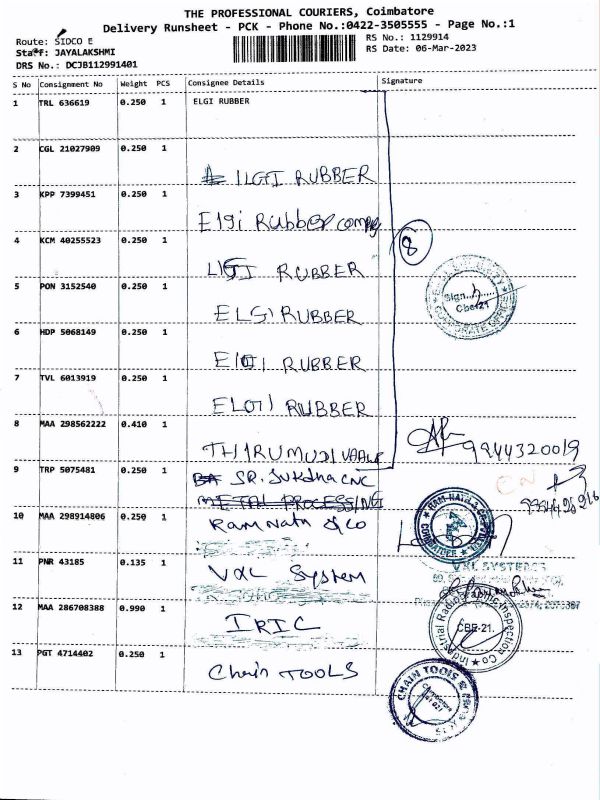 THE PROFESSIONAL COURIERS, Coimbatore
Delivery Runsheet - PCK - Phone No.:0422-3505555 - Page No.:1
Route: SIDCO E
RS No.: 1129914
Staff: JAYALAKSHMI
RS Date: 06-Mar-2023
DRS No.: DCJB112991401
S No Consignment No Weight PCS Consignee Details Signature
1 TRL 636619 0.250 1 ELGI RUBBER
2 CGL 21027909 0.250 1
ILGI RUBBER
3 KPP 7399451 0.250 1
Elgi Rubber
8
4 KCM 40255523 0.250 1
RUBBER
Sign
Cbe-21
CORPORATE OFFICE
5 PON 3152540 0.250 1
ELGI RUBBER
6 HDP 5068149 0.250 1
RUBBER
7 TVL 6013919 0.250 1
ELGI RUBBER
8 MAA 298562222 0.410 1
9944320019
9 TRP 5075481 0.250 1
SR. Suktha CNC
METAL PROCESSING
10 MAA 298914806 0.250 1
Ramnath & Co
COIMBATORE
11 PNR 43185 0.135 1
VXL System
VXL SYSTEMS
12 MAA 286708388 0.990 1
IRIC
Industrial Radiographic Inspection Co
CBE-21.
13 PGT 4714402 0.250 1
Chain TOOLS
CHAIN TOOLS
Coimbatore